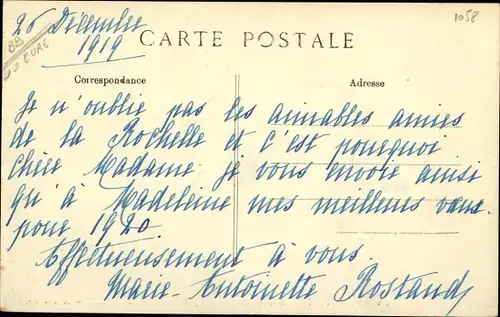 26 Décembre
1919
88
EURE
1058
CARTE POSTALE
Correspondance
Adresse
Je n'oublie pas les aimables amies
de la Rochelle et c'est pourquoi
chère Madame je vous envoie ainsi
qu'à Madeleine mes meilleurs vœux
pour 1920.
Affectueusement à vous.
Marie-Antoinette Rostand